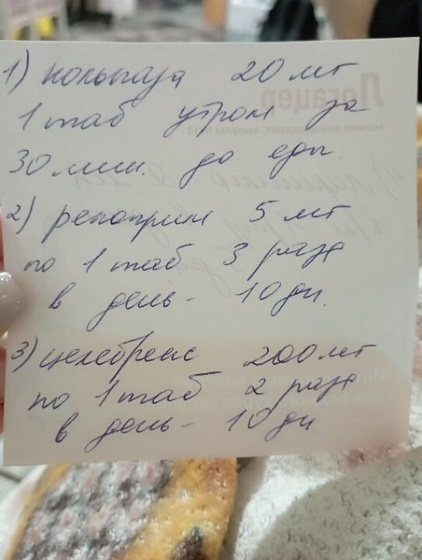 1) нольпаза 20 мг
1 таб утром за
30 мин. до еды.
2) 5 мг
по 1 таб 3 раза
в день - 10 дн.
3) целебрекс 200 мг
по 1 таб 2 раза
в день - 10 дн